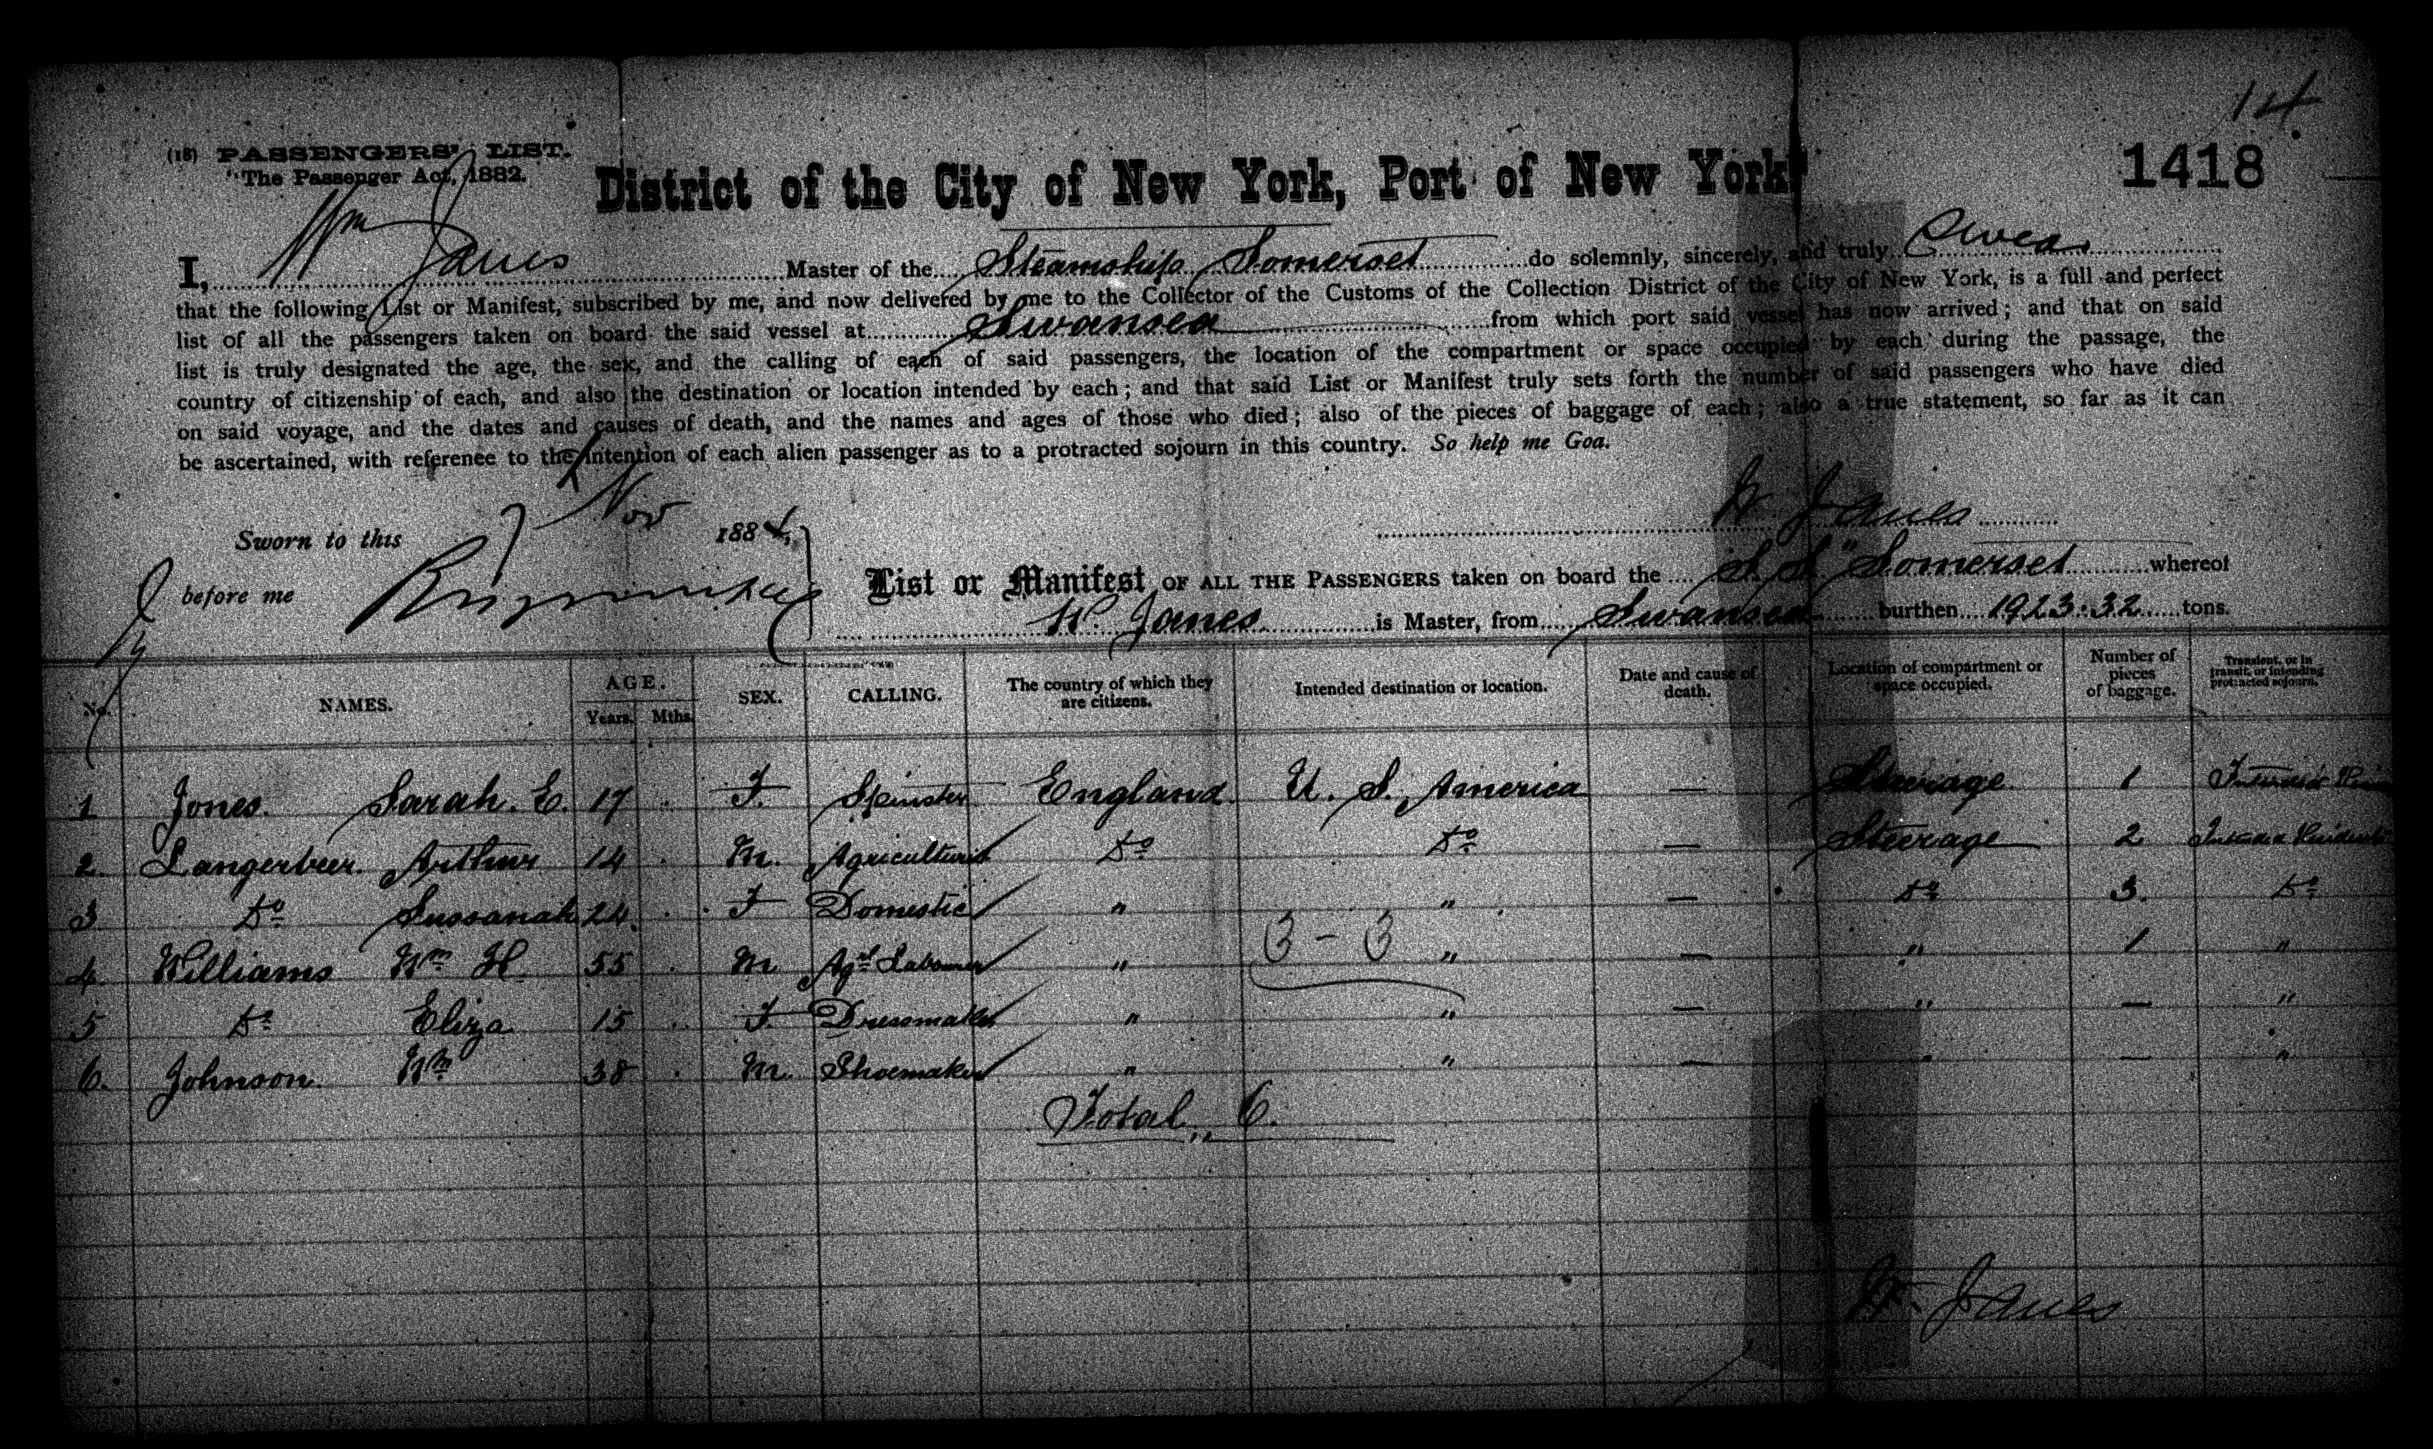 14
(18) PASSENGERS' LIST.
"The Passenger Act, 1882.
District of the City of New York, Port of New York
1418
I, Wm James Master of the Steamship Somerset do solemnly, sincerely, and truly Swear
that the following List or Manifest, subscribed by me, and now delivered by me to the Collector of the Customs of the Collection District of the City of New York, is a full and perfect
list of all the passengers taken on board the said vessel at Swansea from which port said vessel has now arrived; and that on said
list is truly designated the age, the sex, and the calling of each of said passengers, the location of the compartment or space occupied by each during the passage, the
country of citizenship of each, and also the destination or location intended by each; and that said List or Manifest truly sets forth the number of said passengers who have died
on said voyage, and the dates and causes of death, and the names and ages of those who died; also of the pieces of baggage of each; also a true statement, so far as it can
be ascertained, with reference to the intention of each alien passenger as to a protracted sojourn in this country. So help me God.
Sworn to this 7 Nov 1884
W. James
before me
List or Manifest OF ALL THE PASSENGERS taken on board the S. S. "Somerset whereof
W. James is Master, from Swansea burthen 1923.32 tons.
No. NAMES. AGE. Years. Mths. SEX. CALLING. The country of which they are citizens. Intended destination or location. Date and cause of death. Location of compartment or space occupied. Number of pieces of baggage. Transient, or in transit, or intending protracted sojourn.
1 Jones. Sarah. E. 17 F. Spinster England U. S. America — Steerage 1 Intended
2. Langerbeer. Arthur 14 M. Agriculturist Do Do — Steerage 2 Intended Residents
3 Do Sussanah 24 F Domestic " " — Do 3. Do
4. Williams Wm H. 55 M Agl Labourer " 3 - 3 " — " 1 "
5 Do Eliza 15 F. Dressmaker " " — " — "
6. Johnson Wm 38 M. Shoemaker " " — " — "
Total 6.
W. James